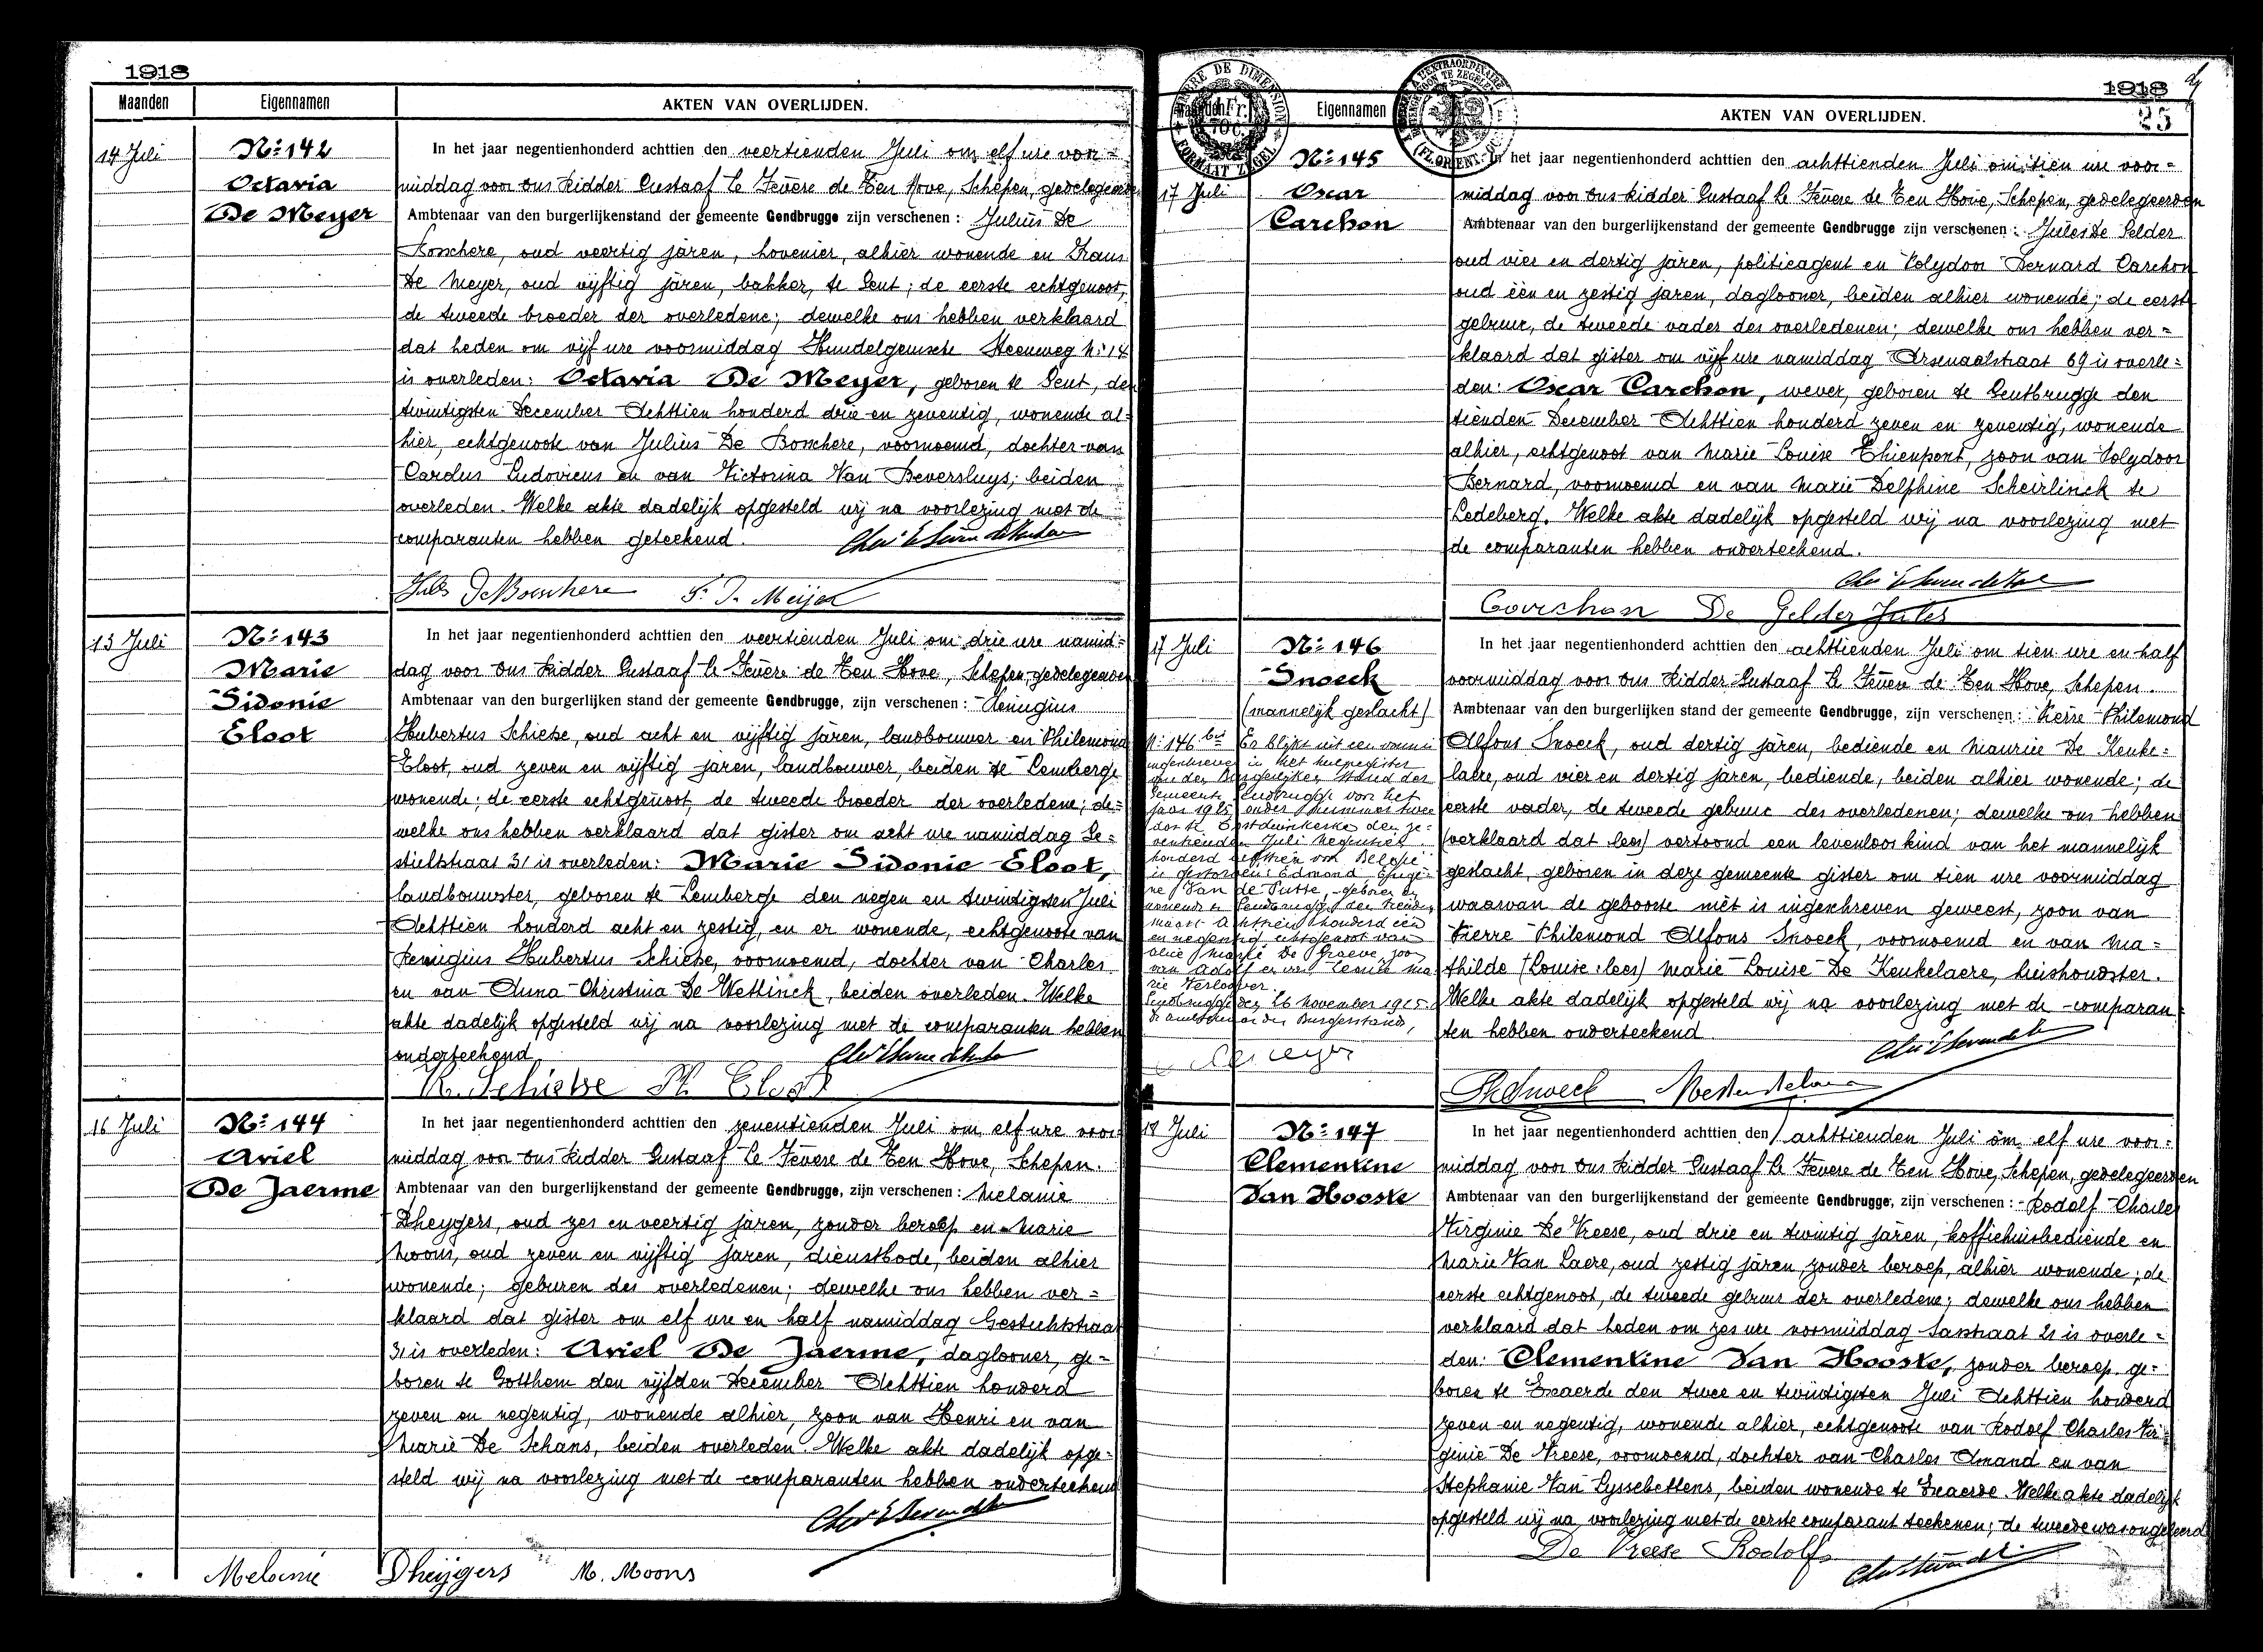 1918
Maanden Eigennamen AKTEN VAN OVERLIJDEN.
14 Juli
Nº 142
Octavia
De Meyer
In het jaar negentienhonderd achttien den veertienden Juli om elf ure voor-
middag voor ons Ridder Gustaaf le Fevere de Ten Hove, Schepen, gedelegeerden
Ambtenaar van den burgerlijkenstand der gemeente Gendbrugge zijn verschenen : Julius De
Bosschere, oud veertig jaren, hovenier, alhier wonende en Frans
De Meyer, oud vijftig jaren, bakker, te Gent; de eerste echtgenoot,
de tweede broeder der overledene; dewelke ons hebben verklaard
dat heden om vijf ure voormiddag Hundelgemsche Steenweg Nº 14
is overleden: Octavia De Meyer, geboren te Gent, den
twintigsten December Achttien honderd drie en zeventig, wonende al-
hier, echtgenoote van Julius De Bosschere, voornoemd, dochter van
Carolus Ludovicus en van Victorina Van Beversluys; beiden
overleden. Welke akte dadelijk opgesteld wij na voorlezing met de
comparanten hebben geteekend.
Jules De Bosschere F. D. Meijer
13 Juli
Nº 143
Marie
Sidonie
Eloot
In het jaar negentienhonderd achttien den veertienden Juli om drie ure namid-
dag voor ons Ridder Gustaaf le Fevere de Ten Hove, Schepen gedelegeerden
Ambtenaar van den burgerlijken stand der gemeente Gendbrugge, zijn verschenen : Remigius
Hubertus Schietse, oud acht en vijftig jaren, landbouwer en Philemond
Eloot, oud zeven en vijftig jaren, landbouwer, beiden te Lemberge
wonende; de eerste echtgenoot, de tweede broeder der overledene; de-
welke ons hebben verklaard dat gister om acht ure namiddag Ge-
stichtstraat 31 is overleden: Marie Sidonie Eloot,
landbouwster, geboren te Lemberge den negen en twintigsten Juli
Achttien honderd acht en zestig, en er wonende, echtgenoote van
Remigius Hubertus Schietse, voornoemd, dochter van Charles
en van Anna Christina De Wettinck, beiden overleden. Welke
akte dadelijk opgesteld wij na voorlezing met de comparanten hebben
onderteekend
R. Schietse Ph Eloot
16 Juli
Nº 144
Ariel
De Jaerme
In het jaar negentienhonderd achttien den zeventienden Juli om elf ure voor
middag voor ons Ridder Gustaaf le Fevere de Ten Hove, Schepen.
Ambtenaar van den burgerlijkenstand der gemeente Gendbrugge, zijn verschenen : Melanie
Dheygers, oud zes en veertig jaren, zonder beroep en Marie
Moons, oud zeven en vijftig jaren, dienstbode, beiden alhier
wonende; geburen des overledenen; dewelke ons hebben ver-
klaard dat gister om elf ure en half namiddag Gestichtstraat
31 is overleden: Ariel De Jaerme, daglooner, ge-
boren te Gotthem den vijfden December Achttien honderd
zeven en negentig, wonende alhier, zoon van Henri en van
Marie De Schans, beiden overleden. Welke akte dadelijk opge-
steld wij na voorlezing met de comparanten hebben onderteekend
Melanie Dheijgers M. Moons
1918
25
Eigennamen AKTEN VAN OVERLIJDEN.
17 Juli
Nº 145
Oscar
Carchon
In het jaar negentienhonderd achttien den achttienden Juli om tien ure voor-
middag voor ons Ridder Gustaaf le Fevere de Ten Hove, Schepen, gedelegeerden
Ambtenaar van den burgerlijkenstand der gemeente Gendbrugge zijn verschenen : Jules De Gelder
oud vier en dertig jaren, politieagent en Polydoor Bernard Carchon
oud één en zestig jaren, daglooner, beiden alhier wonende; de eerst
gebuur, de tweede vader des overledenen; dewelke ons hebben ver-
klaard dat gister om vijf ure namiddag Arsenaalstraat 69 is overle-
den: Oscar Carchon, wever, geboren te Gentbrugge den
tienden December Achttien honderd zeven en zeventig, wonende
alhier, echtgenoot van Marie Louise Thienpont, zoon van Polydoor
Bernard, voornoemd en van Marie Delphine Scheirlinck te
Ledeberg. Welke akte dadelijk opgesteld wij na voorlezing met
de comparanten hebben onderteekend.
Carchon De Gelder Jules
17 Juli
Nº 146
Snoeck
(mannelijk geslacht)
In het jaar negentienhonderd achttien den achttienden Juli om tien ure en half
voormiddag voor ons Ridder Gustaaf le Fevere de Ten Hove, Schepen.
Ambtenaar van den burgerlijken stand der gemeente Gendbrugge, zijn verschenen : Pierre Philemond
Alfons Snoeck, oud dertig jaren, bediende en Maurice De Keuke-
laere, oud vier en dertig jaren, bediende, beiden alhier wonende; de
eerste vader, de tweede gebuur des overledenen; dewelke ons hebben
(verklaard dat lees) vertoond een levenloos kind van het mannelijk
geslacht, geboren in deze gemeente gister om tien ure voormiddag
waarvan de geboorte niet is ingeschreven geweest, zoon van
Pierre Philemond Alfons Snoeck, voornoemd en van Ma-
thilde (Louise: lees) Marie Louise De Keukelaere, huishoudster.
Welke akte dadelijk opgesteld wij na voorlezing met de comparan-
ten hebben onderteekend.
Nº 146 bis Er blijkt uit een vonnis
ingeschreven in het hulpregister
van den Burgerlijken Stand der
Gemeente Gendbrugge voor het
jaar 1925 onder nummer twee
dat te Oostduinkerke den ze-
ventienden Juli Negentien
honderd achttien voor België
is gestorven: Edmond Euge-
ne Van de Putte, geboren en
wonende te Gendbrugge den
Maart Achttien honderd een
en negentig echtgenoot van
Marie De Graeve, zoon
van Adolf en van Leonie Ma
rie Verloover.
Gendbrugge den 26 November 1925
De ambtenaar der Burgerstand,
18 Juli
Nº 147
Clementine
Van Hooste
In het jaar negentienhonderd achttien den achttienden Juli om elf ure voor-
middag voor ons Ridder Gustaaf le Fevere de Ten Hove, Schepen, gedelegeerden
Ambtenaar van den burgerlijkenstand der gemeente Gendbrugge, zijn verschenen : Rodolf Charles
Virginie De Vreese, oud drie en twintig jaren, koffiehuisbediende en
Marie Van Laere, oud zestig jaren, zonder beroep, alhier wonende; de
eerste echtgenoot, de tweede gebuur der overledene; dewelke ons hebben
verklaard dat heden om zes ure voormiddag Sasstraat 21 is overle-
den: Clementine Van Hooste, zonder beroep, ge-
boren te Exaerde den twee en twintigsten Juli Achttien honderd
zeven en negentig, wonende alhier, echtgenoote van Rodolf Charles Vir-
ginie De Vreese, voornoemd, dochter van Charles Amand en van
Stephanie Van Lyssebettens, beiden wonende te Exaerde. Welke akte dadelijk
opgesteld wij na voorlezing met de eerste comparant teekenen; de tweede was ongeleerd
De Vreese Rodolf